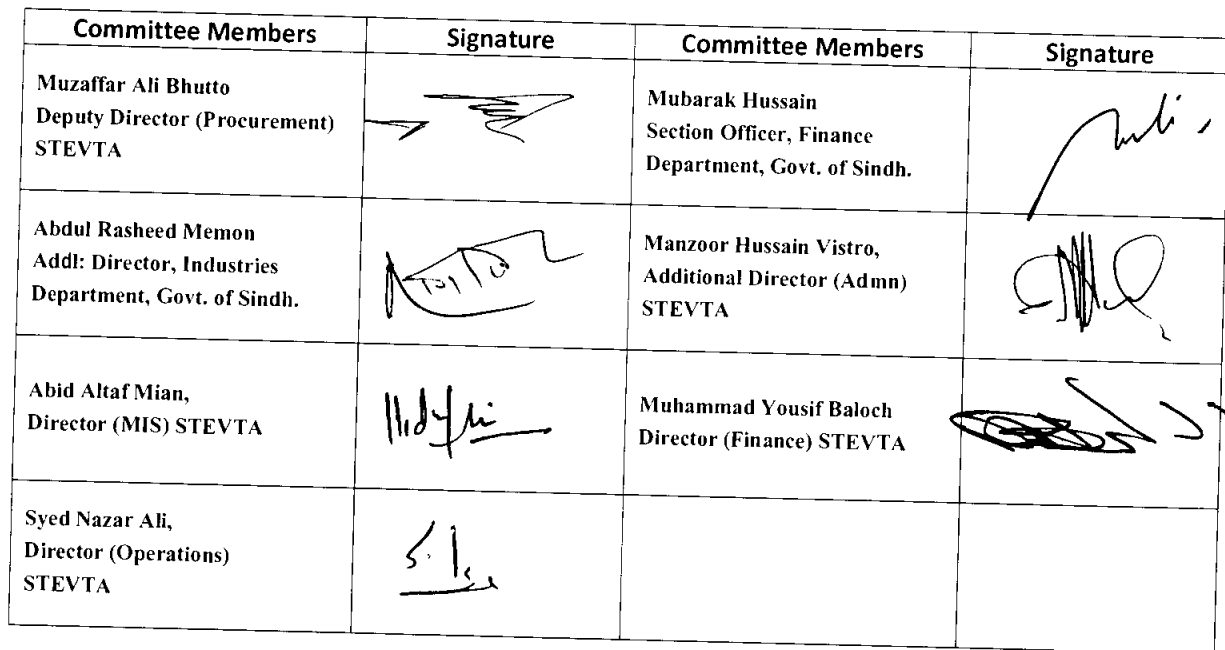 Committee Members
Signature
Committee Members
Signature
Muzaffar Ali Bhutto
Deputy Director (Procurement)
STEVTA
Mubarak Hussain
Section Officer, Finance
Department, Govt. of Sindh.
Abdul Rasheed Memon
Addl: Director, Industries
Department, Govt. of Sindh.
Manzoor Hussain Vistro,
Additional Director (Admn)
STEVTA
Abid Altaf Mian,
Director (MIS) STEVTA
Muhammad Yousif Baloch
Director (Finance) STEVTA
Syed Nazar Ali,
Director (Operations)
STEVTA